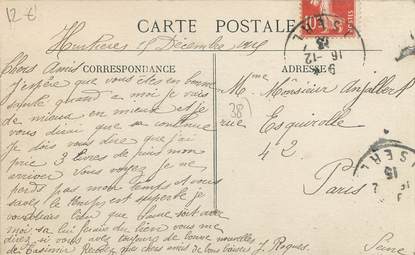 12 €
CARTE POSTALE
10
Décembre
CORRESPONDANCE
ADRESSE
Chers Amis
j'espère que vous êtes en bonne
santé quand a moi je vais
de mieux en mieux et je
vous dirai que sa continue
je dois vous dire que j'ai
pris 3 livres de puis mon
arriver vous voyez je ne
perds pas mon temps et vous
savez le temps est superbe je
voudrais bien que soit avec
moi sa lui ferais du bien vous me
direz si vous avez toujours de bonne nouvelles
de Casimir chers amis de vous baisers J. Roques
Mme Monsieur
38
rue Esquirolle
42
Paris
Seine
16-12
15